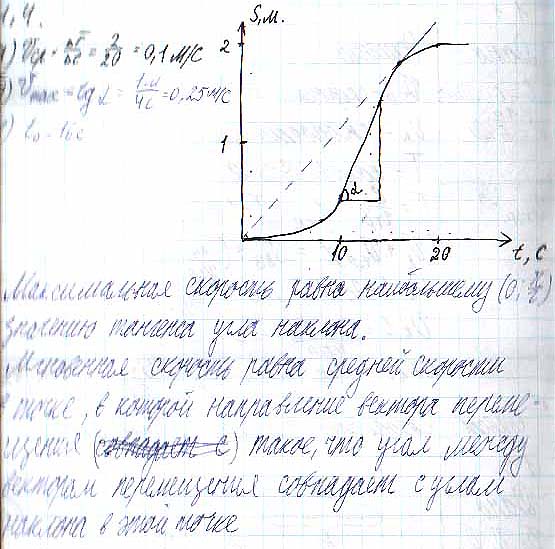 1.4.
S,м.
) Vср = ΔS/Δt = 2/20 = 0,1 м/с
2
) Vmax = tg α = 1м/4с = 0,25 м/с
) t₀ = 16с
1
α
10
20
t, с
Максимальная скорость равна наибольшему (0; π/2)
значению тангенса угла наклона.
Мгновенная скорость равна средней скорости
в точке, в которой направление вектора переме-
щения (совпадает с) такое, что угол между
вектором перемещения совпадает с углом
наклона в этой точке